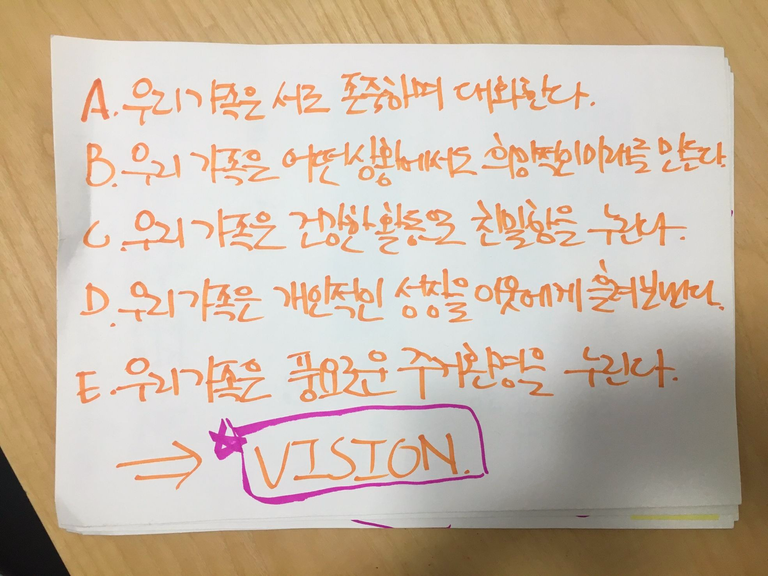 A. 우리 가족은 서로 존중하며 대화한다.
B. 우리 가족은 어떤 상황에서도 희망적인 미래를 만든다.
C. 우리 가족은 건강한 활동으로 친밀함을 누린다.
D. 우리 가족은 개인적인 성장을 이웃에게 흘려보낸다.
E. 우리 가족은 풍요로운 주거환경을 누린다.
⇒ ☆ VISION.